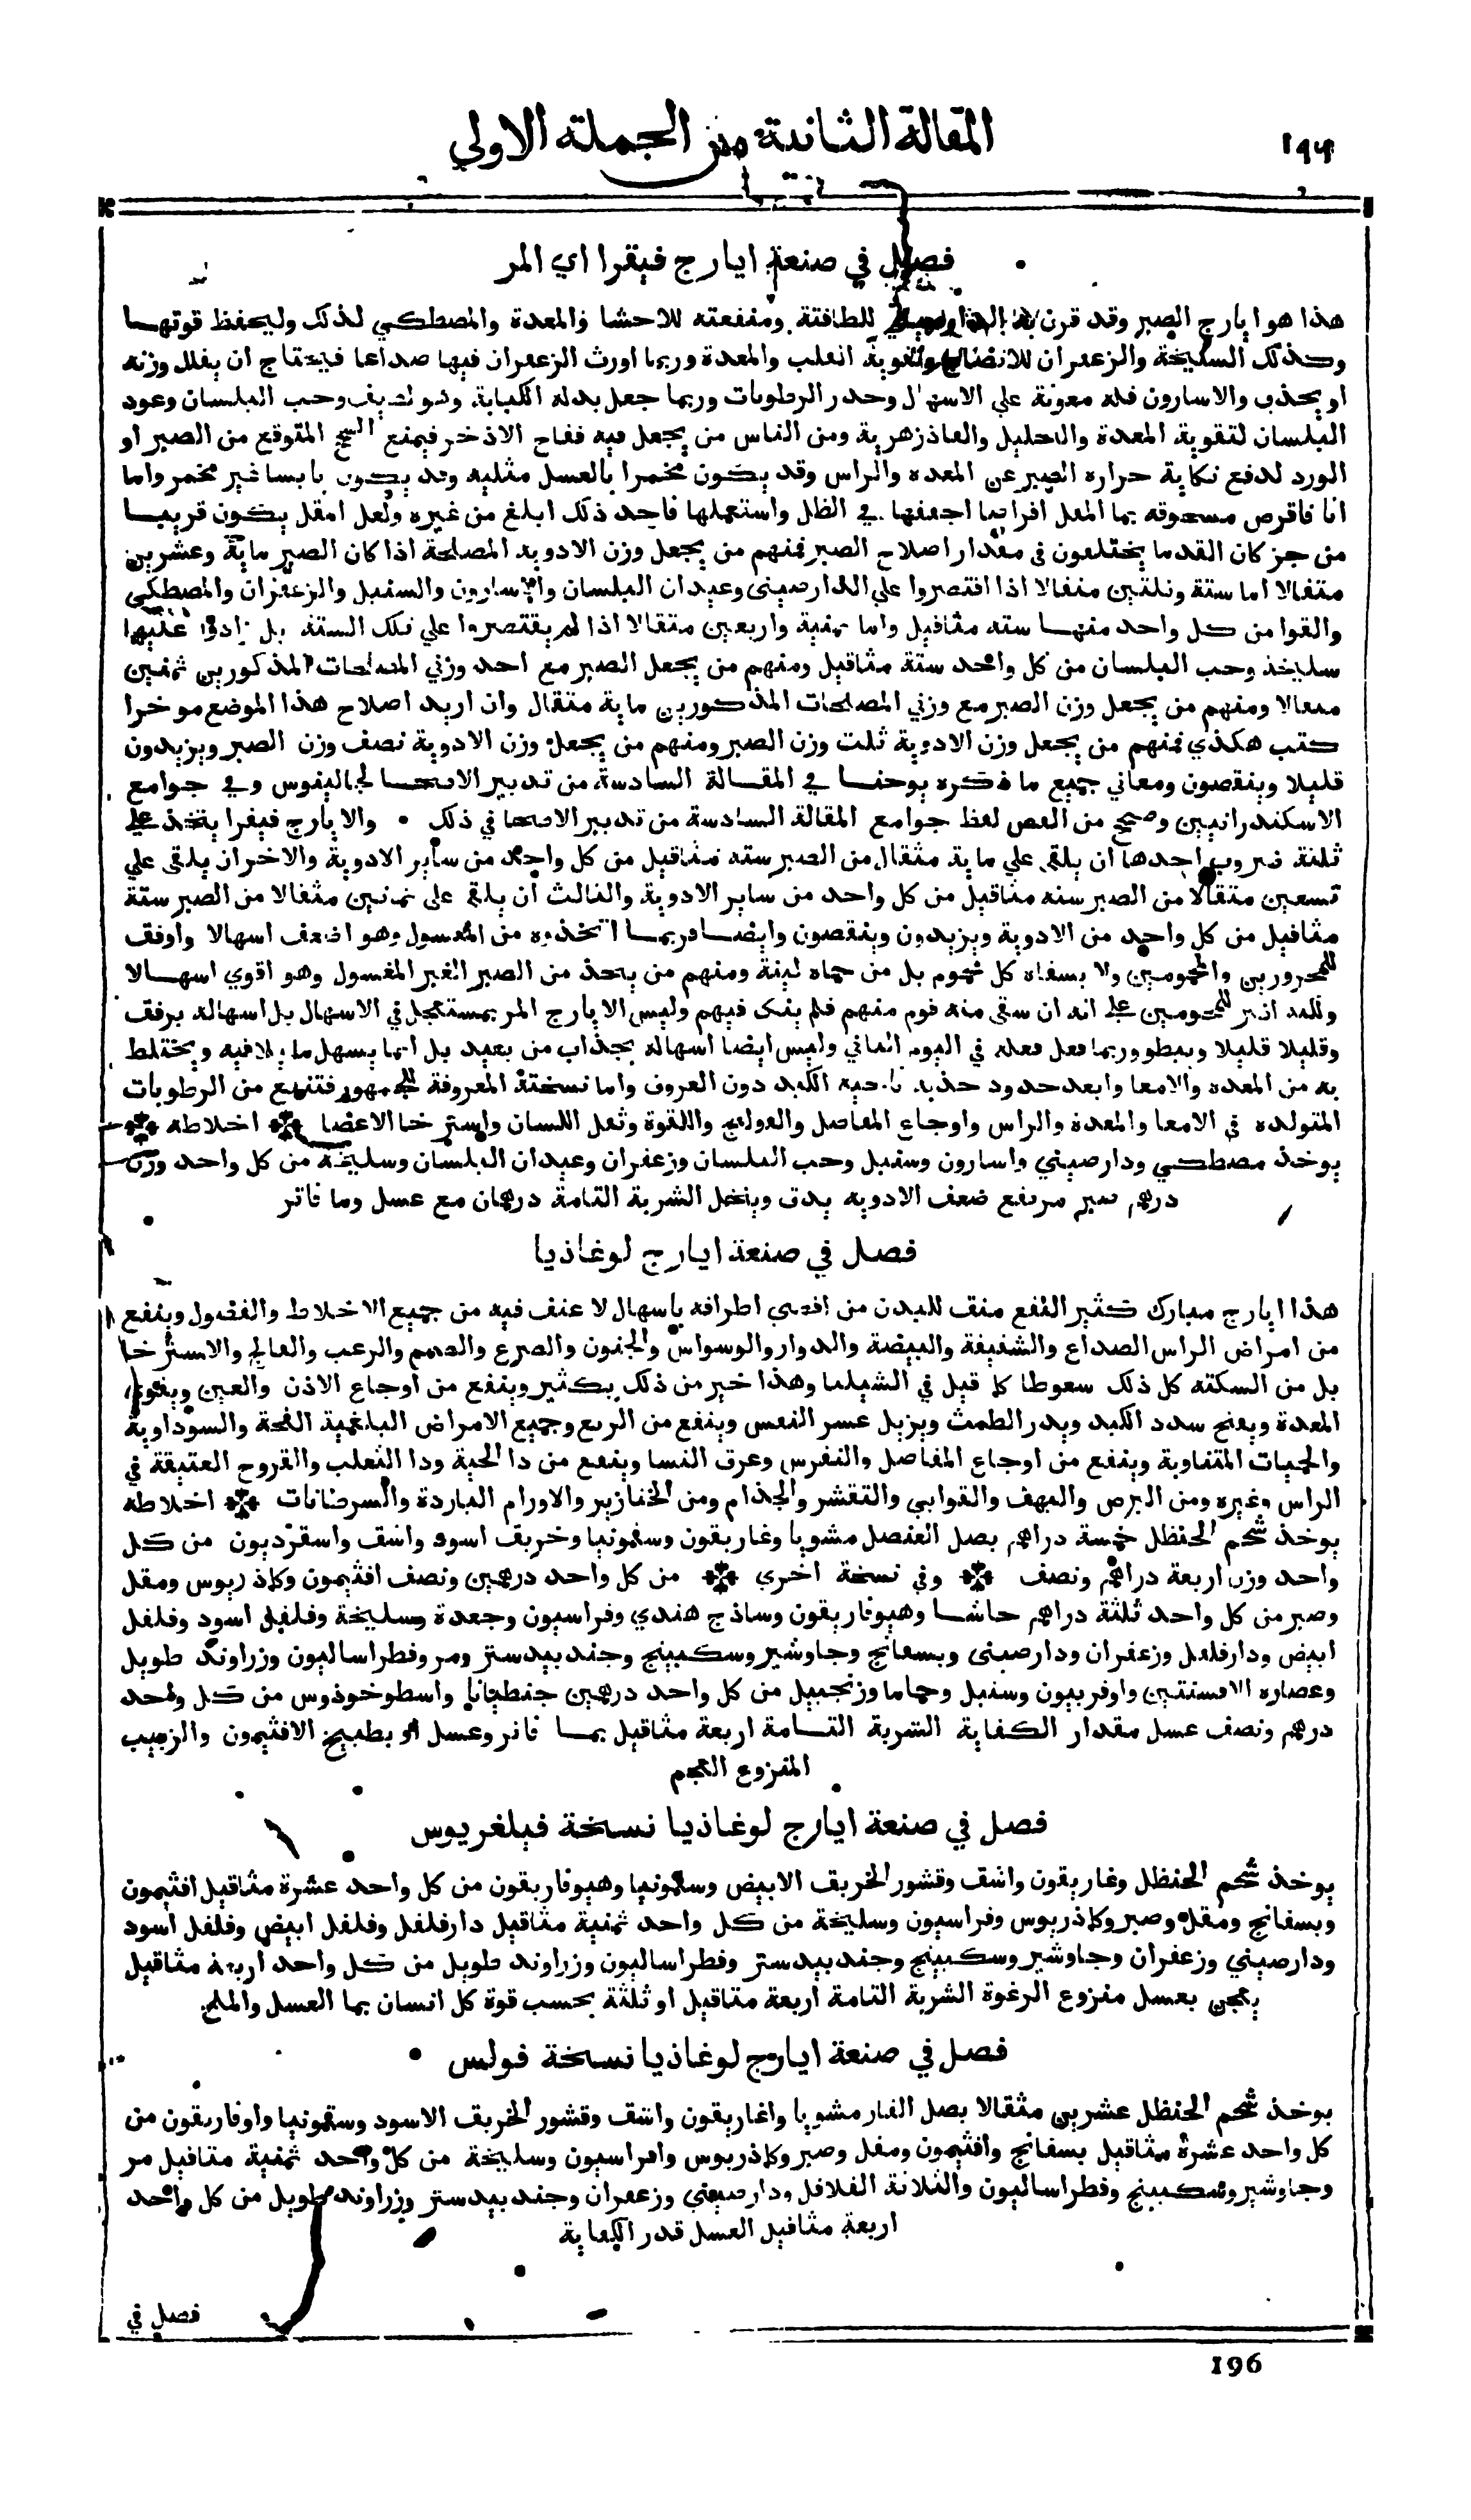 ١٩٦
المقالة الثانية من الجملة الاولي
فصل في صنعة ايارج فيقرا اي المر
هذا هو ايارج الصبر وقد قرن به الدارصيني للطافتة ومنفعته للاحشا والمعدة والمصطكي لذلك وليحفظ قوتها
وكذلك السليخة والزعفران للانضاج وتقوية القلب والمعدة وربما اورث الزعفران فيها صداعا فيحتاج ان يقلل وزنه
او يحذف والاسارون فله معونة علي الاسهال وحدر الرطوبات وربما جعل بدله الكبابة وهو لطيف وحب البلسان وعود
البلسان لتقوية المعدة والتحليل والفاذزهرية ومن الناس من يجعل فيه فقاح الاذخر فيمنع السحج المتوقع من الصبر او
الورد لدفع نكاية حراره الصبر عن المعده والراس وقد يكون مخمرا بالعسل مثليه وقد يكون يابسا غير مخمر واما
انا فاقرص مسحوقه بما المقل اقراصا اجففها في الظل واستعملها فاجد ذلك ابلغ من غيره ولعل المقل يكون قريبا
من جز كان القدما يختلفون في مقدار اصلاح الصبر فمنهم من يجعل وزن الادويه المصلحة اذا كان الصبر ماية وعشرين
مثقالا اما ستة وثلثين مثقالا اذا اقتصروا علي الدارصيني وعيدان البلسان والاسارون والسنبل والزعفران والمصطكي
والقوا من كل واحد منها سته مثاقيل واما ثمنية واربعين مثقالا اذا لم يقتصروا علي تلك الستة بل زادوا عليها
سليخة وحب البلسان من كل واحد ستة مثاقيل ومنهم من يجعل الصبر مع احد وزني المصلحات المذكورين ثمنين
مثقالا ومنهم من يجعل وزن الصبر مع وزني المصلحات المذكورين ماية مثقال وان اريد اصلاح هذا الموضع موخرا
كتب هكذي فمنهم من يجعل وزن الادوية ثلث وزن الصبر ومنهم من يجعل وزن الادوية نصف وزن الصبر ويزيدون
قليلا وينقصون ومعاني جميع ما ذكره يوحنا في المقالة السادسة من تدبير الاصحا لجالينوس وفي جوامع
الاسكندرانيين وصحيح من الفص لفظ جوامع المقالة السادسة من تدبير الاصحا في ذلك والايارج فيقرا يتخذ علي
ثلثة ضروب احدها ان يلقي علي ماية مثقال من الصبر سته مثاقيل من كل واحد من ساير الادوية والاخر ان يلقي علي
تسعين مثقالا من الصبر سته مثاقيل من كل واحد من ساير الادوية والثالث ان يلقي علي ثمنين مثقالا من الصبر ستة
مثاقيل من كل واحد من الادوية ويزيدون وينقصون وايضا فربما اتخذوه من المغسول وهو اضعف اسهالا واوفق
للمحرورين والمحمومين ولا يسقاه كل محموم بل من حماه لينة ومنهم من يتخذ من الصبر الغير المغسول وهو اقوي اسهالا
ولكنه اضر للمحمومين علي انه ان سقي منه قوم منهم فلم ينك فيهم وليس الايارج المر بمستعجل في الاسهال بل اسهاله برفق
وقليلا قليلا ويبطو وربما فعل فعله في اليوم الثاني وليس ايضا اسهاله بجذاب من بعيد بل انما يسهل ما يلاقيه ويختلط
به من المعده والامعا وابعد حدود جذبه ناحية الكبد دون العروق واما نسختة المعروفة للجمهور فتنفع من الرطوبات
المتولده في الامعا والمعدة والراس واوجاع المفاصل والقولنج واللقوة وثقل اللسان واسترخا الاعضا اخلاطه
يوخذ مصطكي ودارصيني واسارون وسنبل وحب البلسان وزعفران وعيدان البلسان وسليخة من كل واحد وزن
درهم صبر مرتفع ضعف الادويه يدق وينخل الشربة التامة درهمان مع عسل وما فاتر
فصل في صنعة ايارج لوغاذيا
هذا ايارج مبارك كثير النفع منق للبدن من اقصي اطرافه باسهال لا عنف فيه من جميع الاخلاط والفضول وينفع
من امراض الراس الصداع والشقيقة والبيضة والدوار والوسواس والجنون والصرع والصمم والرعب والفالج والاسترخا
بل من السكته كل ذلك سعوطا كما قيل في الشيلثا وهذا خير من ذلك بكثير وينفع من اوجاع الاذن والعين ويقوي
المعدة ويفتح سدد الكبد ويدر الطمث ويزيل عسر النفس وينفع من الربع وجميع الامراض البلغمية الفجة والسوداوية
والحميات المتفاوبة وينفع من اوجاع المفاصل والنقرس وعرق النسا وينفع من دا الحية ودا الثعلب والقروح العتيقة في
الراس وغيره ومن البرص والبهق والقوابي والتقشر والجذام ومن الخنازير والاورام الباردة والسرطانات اخلاطه
يوخذ شحم الحنظل خمسة دراهم بصل العنصل مشويا وغاريقون وسقمونيا وخربق اسود واشق واسقرديون من كل
واحد وزن اربعة دراهم ونصف وفي نسخة اخري من كل واحد درهمين ونصف افثيمون وكماذريوس ومقل
وصبر من كل واحد ثلثة دراهم حاشا وهيوفاريقون وساذج هندي وفراسيون وجعدة وسليخة وفلفل اسود وفلفل
ابيض ودارفلفل وزعفران ودارصيني وبسفايج وجاوشير وسكبينج وجندبيدستر ومر وفطراساليون وزراوند طويل
وعصاره الافسنتين واوفربيون وسنبل وحماما وزنجبيل من كل واحد درهمين جنطيانا واسطوخوذوس من كل واحد
درهم ونصف عسل مقدار الكفاية الشربة التامة اربعة مثاقيل بما فاتر وعسل او بطبيخ الافثيمون والزبيب
المنزوع العجم
فصل في صنعة ايارج لوغاذيا نسخة فيلغريوس
يوخذ شحم الحنظل وغاريقون واشق وقشور الخربق الابيض وسقمونيا وهيوفاريقون من كل واحد عشرة مثاقيل افثيمون
وبسفايج ومقل وصبر وكماذريوس وفراسيون وسليخة من كل واحد ثمنية مثاقيل دارفلفل وفلفل ابيض وفلفل اسود
ودارصيني وزعفران وجاوشير وسكبينج وجندبيدستر وفطراساليون وزراوند طويل من كل واحد اربعة مثاقيل
يعجن بعسل منزوع الرغوة الشربة التامة اربعة مثاقيل او ثلثة بحسب قوة كل انسان بما العسل والملح
فصل في صنعة ايارج لوغاذيا نسخة فولس
يوخذ شحم الحنظل عشرين مثقالا بصل الفار مشويا واغاريقون واشق وقشور الخربق الاسود وسقمونيا واوفاريقون من
كل واحد عشرة مثاقيل بسفايج وافثيمون ومقل وصبر وكماذريوس وافراسيون وسليخة من كل واحد ثمنية مثاقيل مر
وجاوشير وسكبينج وفطراساليون والثلاثة الفلافل ودارصيني وزعفران وجندبيدستر وزراوند طويل من كل واحد
اربعة مثاقيل العسل قدر الكفاية
فصل في
196